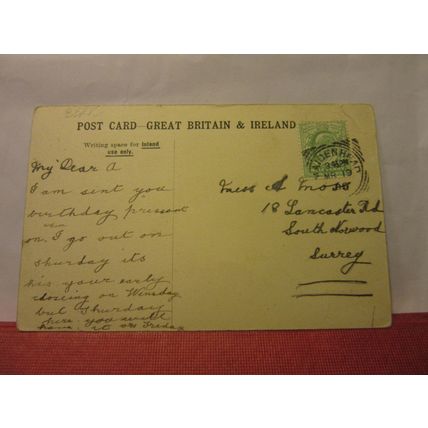 POST CARD—GREAT BRITAIN & IRELAND
Writing space for Inland
use only.
MAIDENHEAD
MR 19
My Dear A
I am sent you
birthday pressant
on. I go out on
shurday its
his your early
closeing on Winsday
but Shurday
here you will
have it on Friday
Miss A Moss
18 Lancaster Rd
South Norwood
Surrey